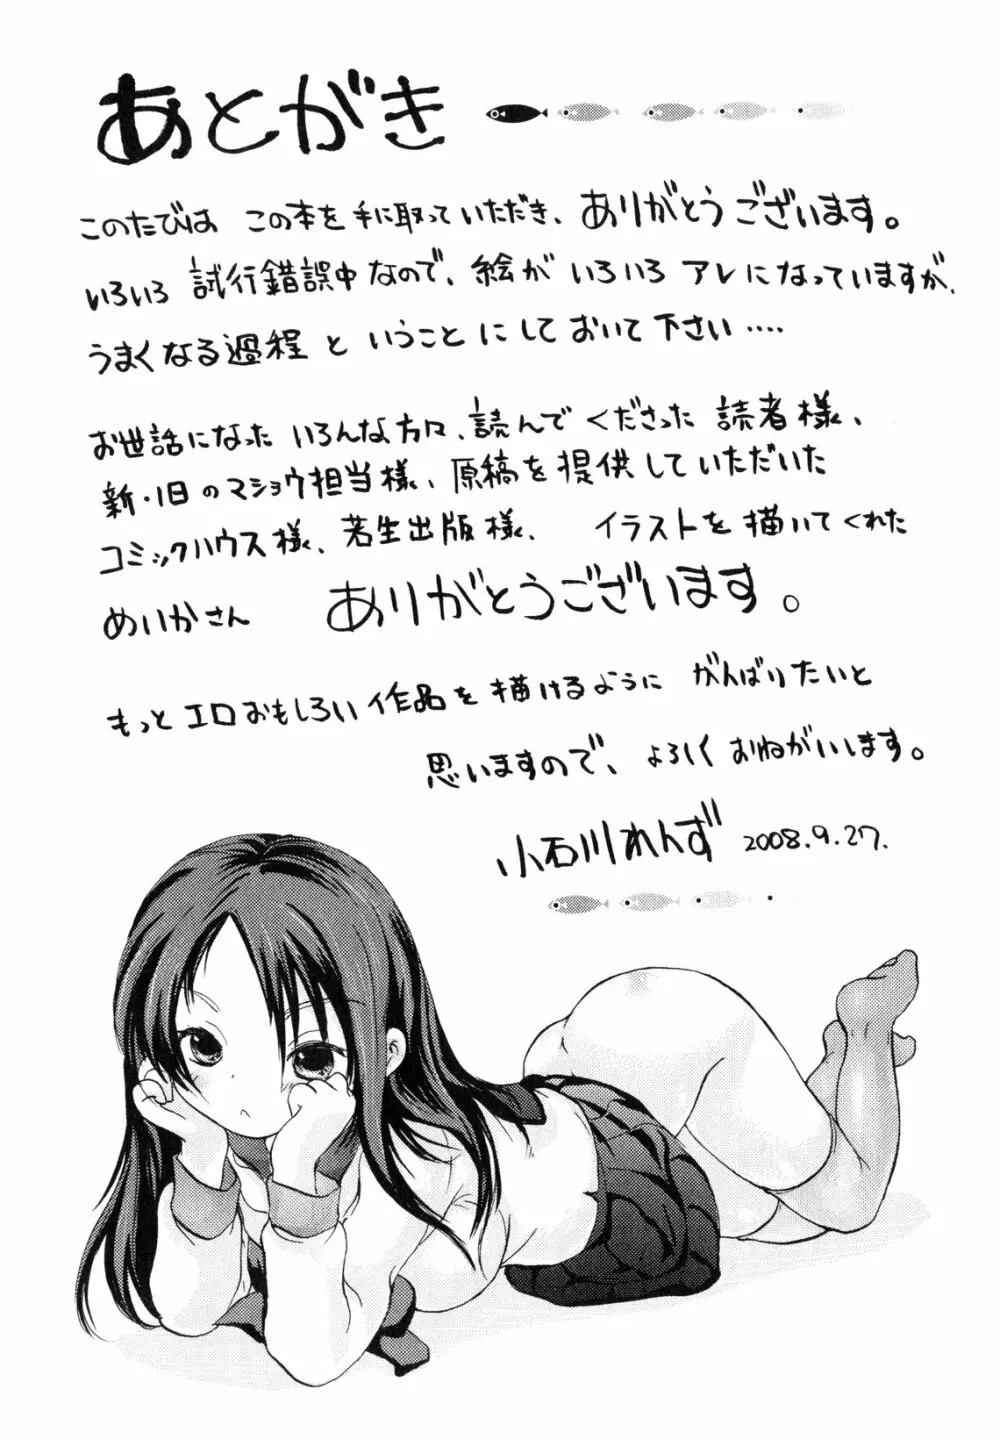 あとがき
このたびは この本を手に取っていただき、ありがとうございます。
いろいろ 試行錯誤中なので、絵が いろいろ アレになっていますが、
うまくなる過程 と いうことにしておいて下さい‥‥
お世話になった いろんな方々、読んでくださった 読者様、
新・旧のマショウ担当様、原稿を提供していただいた
コミックハウス様、若生出版様、 イラストを描いてくれた
めいかさん ありがとうございます。
もっとエロおもしろい作品を描けるように がんばりたいと
思いますので、よろしくおねがいします。
小石川れんず 2008.9.27.